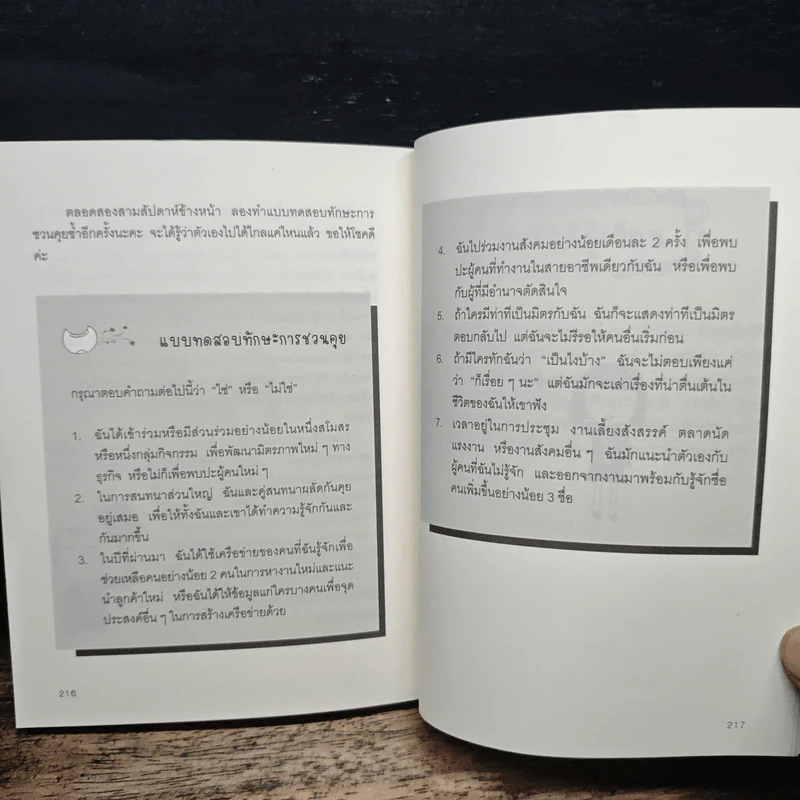 ตลอดสองสามสัปดาห์ข้างหน้า ลองทำแบบทดสอบทักษะการ
ชวนคุยซ้ำอีกครั้งนะคะ จะได้รู้ว่าตัวเองไปได้ไกลแค่ไหนแล้ว ขอให้โชคดี
ค่ะ
แบบทดสอบทักษะการชวนคุย
กรุณาตอบคำถามต่อไปนี้ว่า “ใช่” หรือ “ไม่ใช่”
1. ฉันได้เข้าร่วมหรือมีส่วนร่วมอย่างน้อยในหนึ่งสโมสร
หรือหนึ่งกลุ่มกิจกรรม เพื่อพัฒนามิตรภาพใหม่ ๆ ทาง
ธุรกิจ หรือไม่ก็เพื่อพบปะผู้คนใหม่ ๆ
2. ในการสนทนาส่วนใหญ่ ฉันและคู่สนทนาผลัดกันคุย
อยู่เสมอ เพื่อให้ทั้งฉันและเขาได้ทำความรู้จักกันและ
กันมากขึ้น
3. ในปีที่ผ่านมา ฉันได้ใช้เครือข่ายของคนที่ฉันรู้จักเพื่อ
ช่วยเหลือคนอย่างน้อย 2 คนในการหางานใหม่และแนะ
นำลูกค้าใหม่ หรือฉันได้ให้ข้อมูลแก่ใครบางคนเพื่อจุด
ประสงค์อื่น ๆ ในการสร้างเครือข่ายด้วย
216
4. ฉันไปร่วมงานสังคมอย่างน้อยเดือนละ 2 ครั้ง เพื่อพบ
ปะผู้คนที่ทำงานในสายอาชีพเดียวกับฉัน หรือเพื่อพบ
กับผู้ที่มีอำนาจตัดสินใจ
5. ถ้าใครมีท่าทีเป็นมิตรกับฉัน ฉันก็จะแสดงท่าทีเป็นมิตร
ตอบกลับไป แต่ฉันจะไม่รีรอให้คนอื่นเริ่มก่อน
6. ถ้ามีใครทักฉันว่า “เป็นไงบ้าง” ฉันจะไม่ตอบเพียงแค่
ว่า “ก็เรื่อย ๆ นะ” แต่ฉันมักจะเล่าเรื่องที่น่าตื่นเต้นใน
ชีวิตของฉันให้เขาฟัง
7. เวลาอยู่ในการประชุม งานเลี้ยงสังสรรค์ ตลาดนัด
แรงงาน หรืองานสังคมอื่น ๆ ฉันมักแนะนำตัวเองกับ
ผู้คนที่ฉันไม่รู้จัก และออกจากงานมาพร้อมกับรู้จักชื่อ
คนเพิ่มขึ้นอย่างน้อย 3 ชื่อ
217